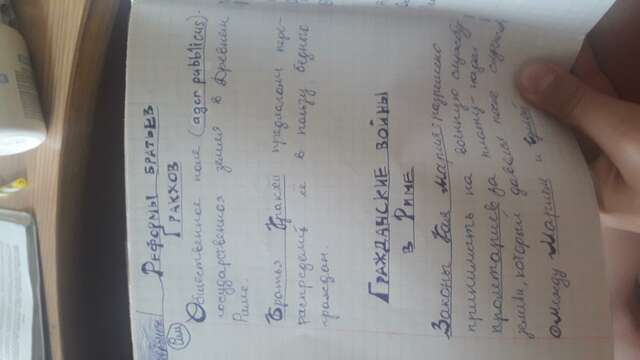 Реформы братьев
Гракхов
Общественное поле (ager pubblicus).
государственная земля в Древнем
Риме.
Братья Гракхи предлагали пере-
распределить её в пользу бедных
граждан.
Гражданские войны
в Риме
Законы Гая Мария: разрешено
принимать на военную службу
пролетариев за плату - надел
земли, который давали после службы
Между Марием и